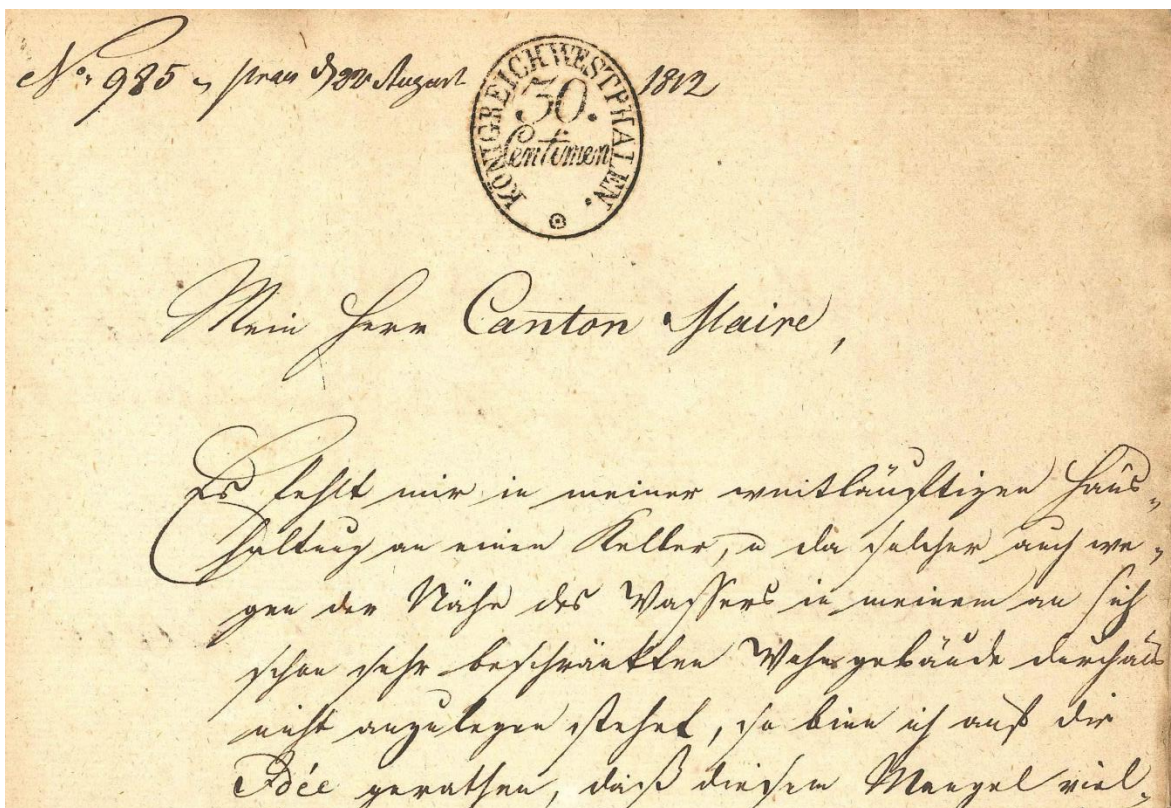 No. 985 praes d 22 August 1812
KÖNIGREICH WESTPHALEN.
30.
Centimen
Mein Herr Canton Maire,
Es fehlt mir in meiner weitläuftigen Haus„
haltung an einen Keller, u da solcher auch we„
gen der Nähe des Wassers in meinem an sich
schon sehr beschränkten Wohngebäude durchaus
nicht anzulegen stehet, so bin ich auf die
Idée gerathen, daß diesem Mangel viel„